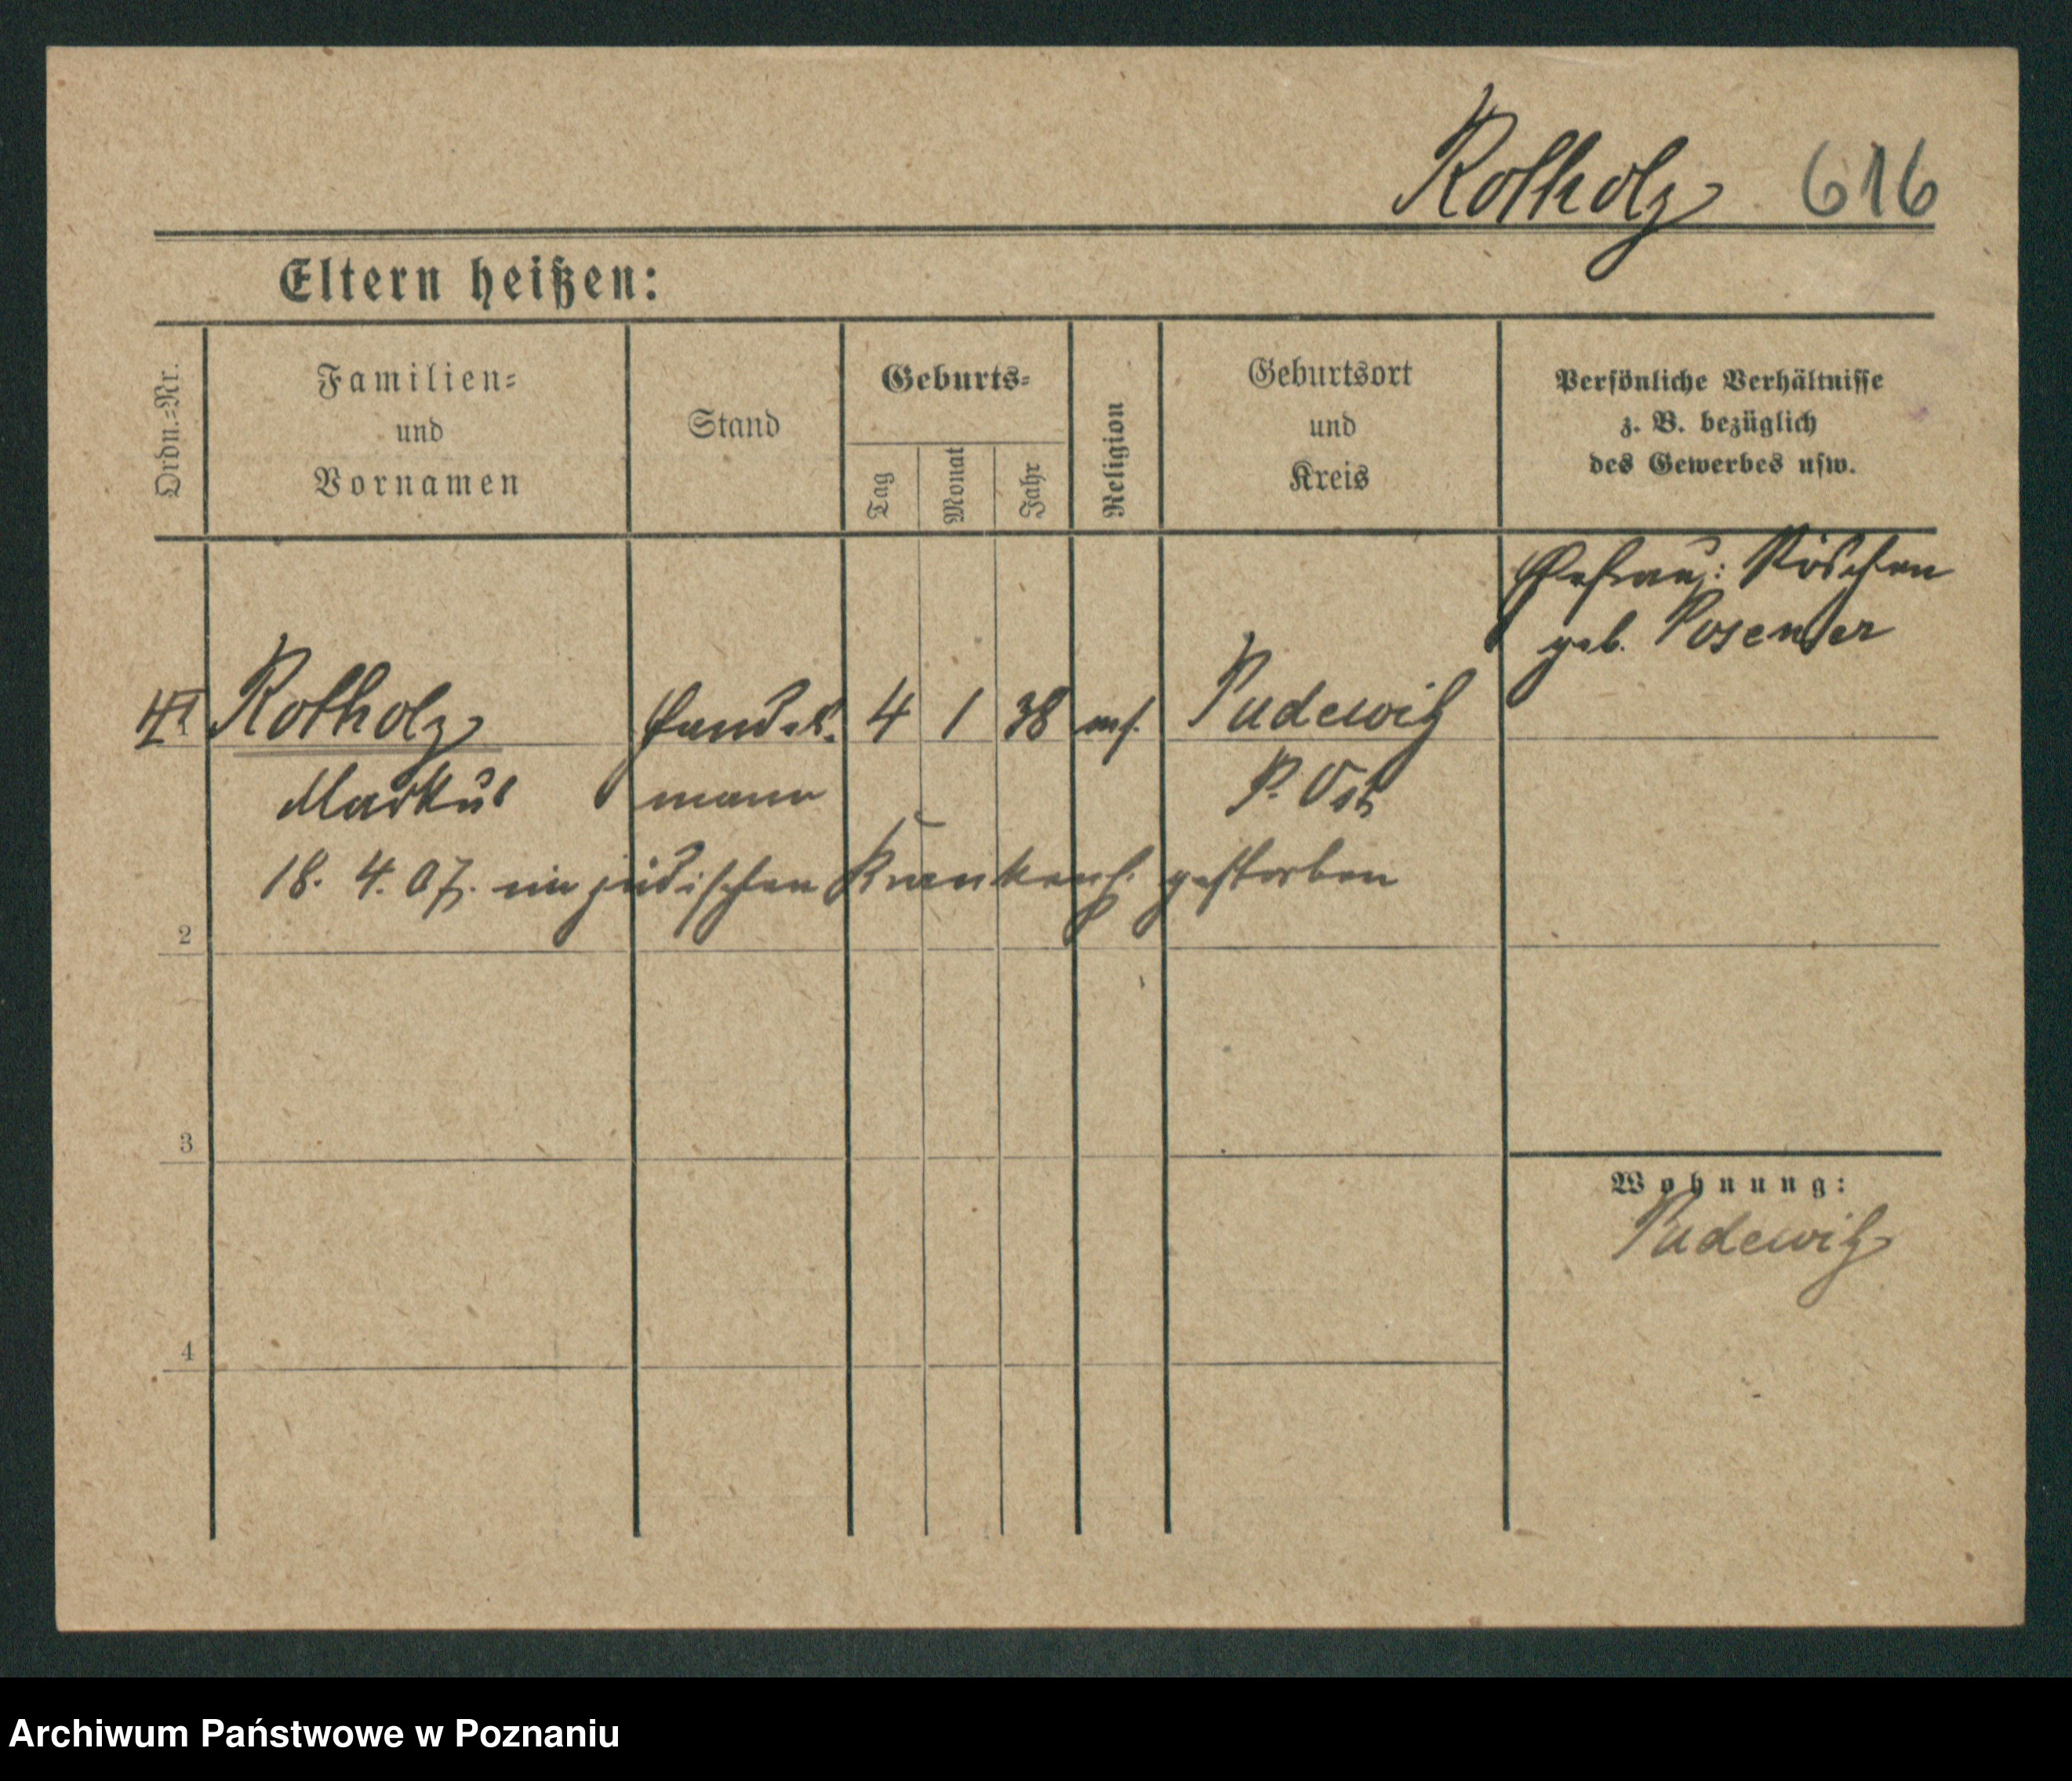 Rotholz 616
Eltern heißen:
Ordn.=Nr.
Familien=
und
Vornamen
Stand
Geburts=
Tag
Monat
Jahr
Religion
Geburtsort
und
Kreis
Persönliche Verhältnisse
z. B. bezüglich
des Gewerbes usw.
Ehefrau: Röschen
geb. Posener
Rotholz Handels- 4 1 38 Pudewitz
Markus mann P. Ost
18. 4. 07. im jüdischen Krankenh. gestorben
2
3
Wohnung:
Pudewitz
4
Archiwum Państwowe w Poznaniu